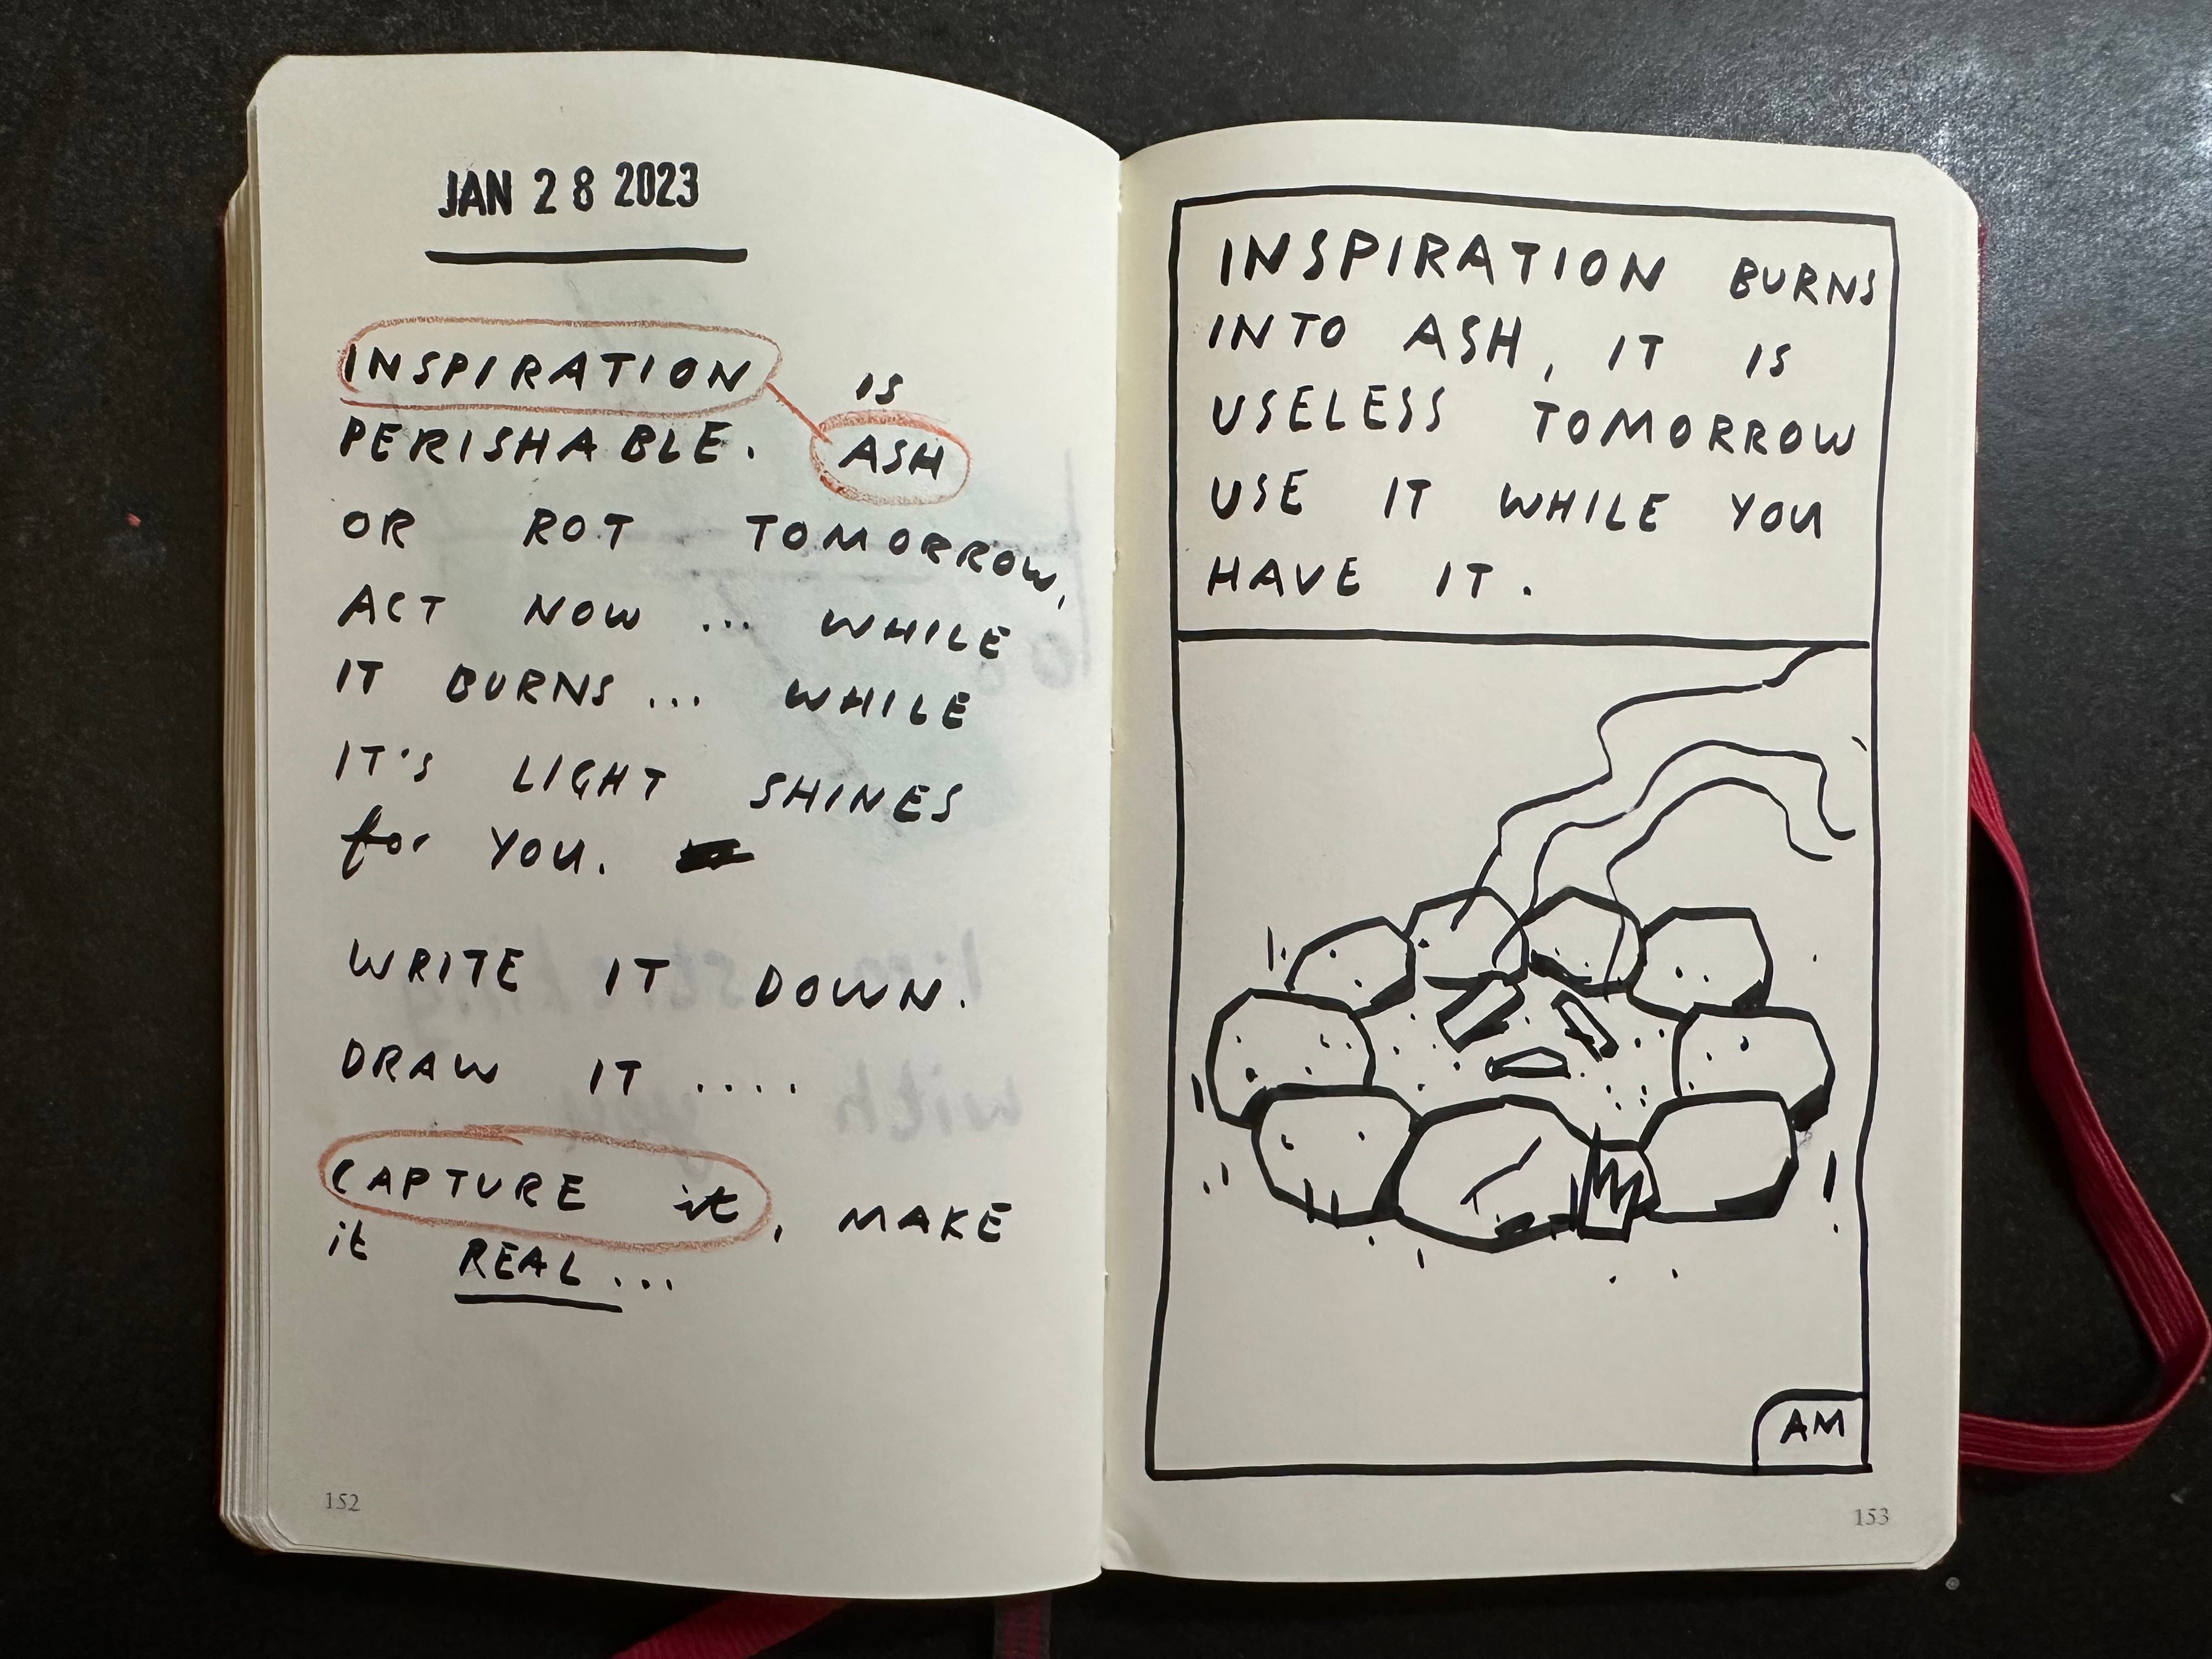 JAN 28 2023
INSPIRATION IS
PERISHABLE. ASH
OR ROT TOMORROW,
ACT NOW ... WHILE
IT BURNS ... WHILE
IT'S LIGHT SHINES
for YOU.
WRITE IT DOWN.
DRAW IT ....
CAPTURE it, MAKE
it REAL ...
152
INSPIRATION BURNS
INTO ASH, IT IS
USELESS TOMORROW
USE IT WHILE YOU
HAVE IT.
AM
153